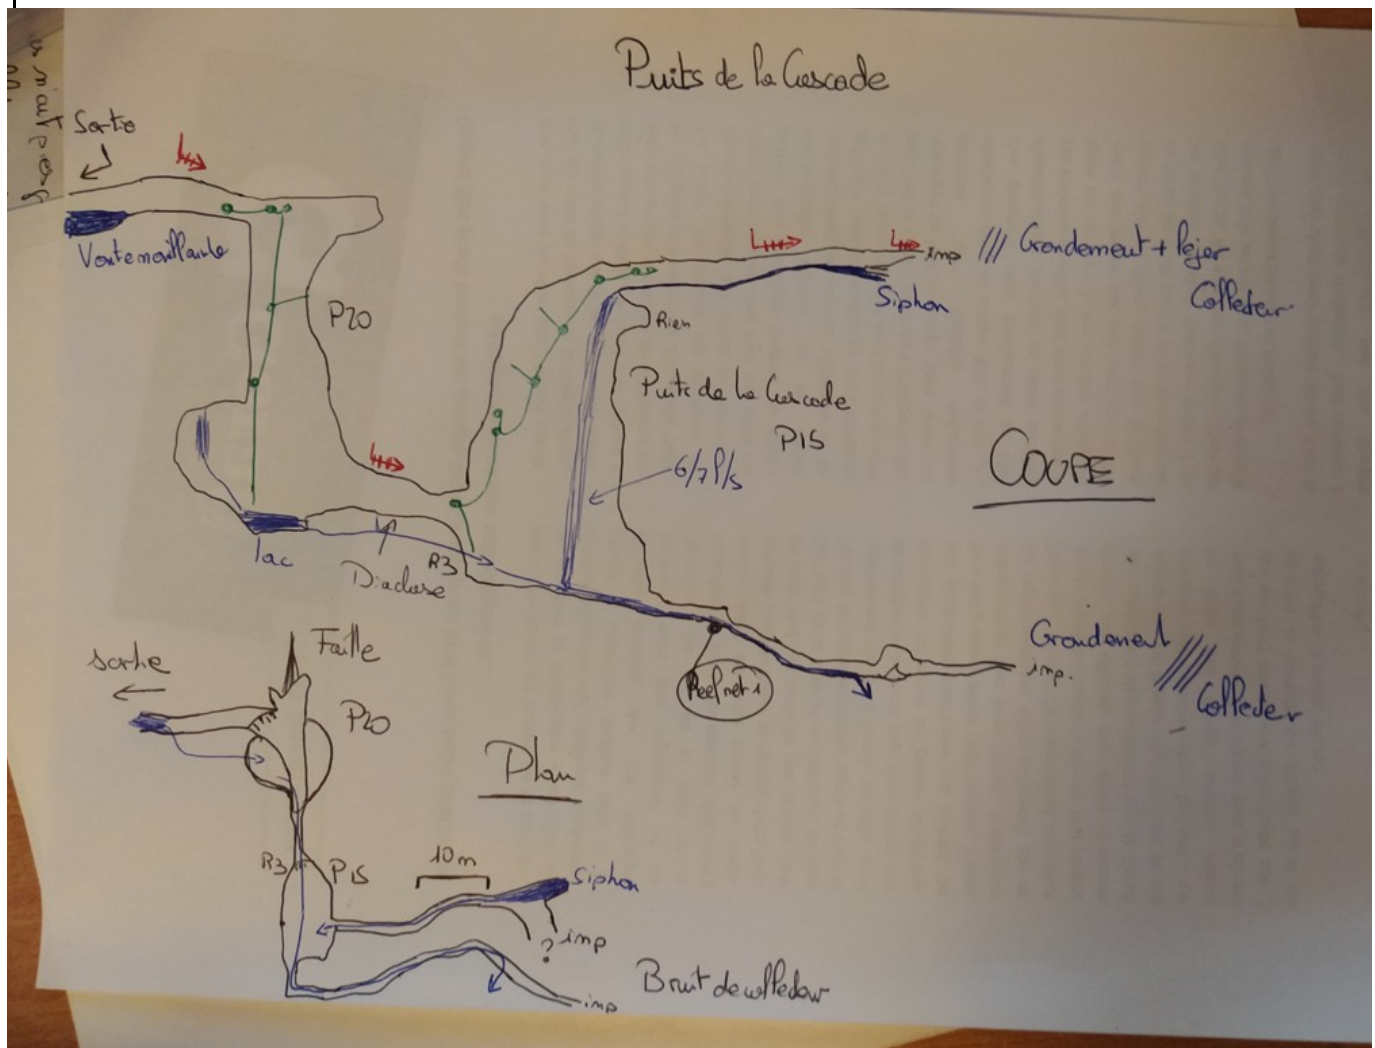 Puits de la Cascade
Sortie
Voute mouillante
P20
Grondement +
Collecteur
imp
Siphon
Rien
Puits de la Cascade
P15
6/7 l/s
COUPE
lac
Diaclase
R3
Reefnet 1
Grondement
imp.
Collecteur
sortie
Faille
P20
Plan
R3
P15
10m
Siphon
? imp
Bruit de collecteur
imp